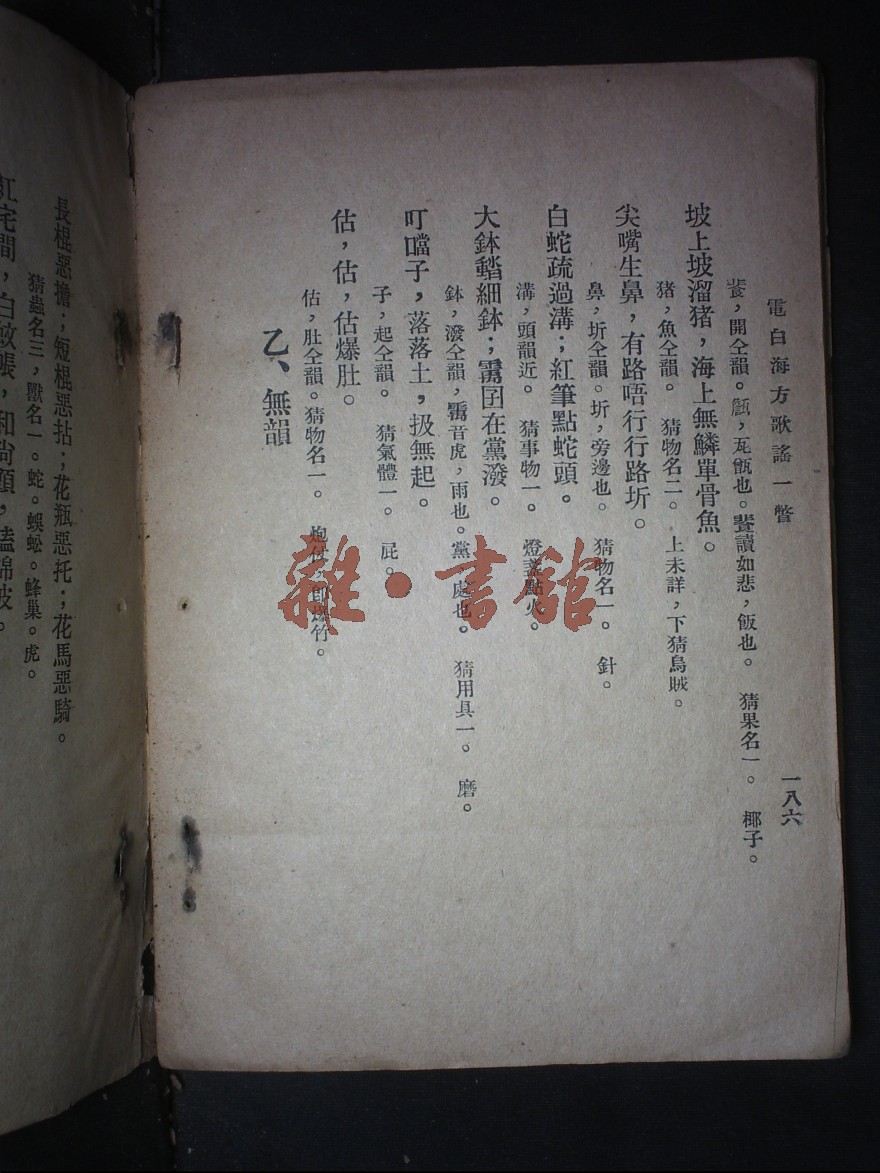 電白海方歌謠一瞥
一八六
開仝韻。瓦甑也。讀如悲,飯也。 猜果名一。 椰子。
坡上坡溜猪,海上無鱗單骨魚。
猪,魚仝韻。 猜物名二。 上未詳,下猜烏賊。
尖嘴生鼻,有路唔行行路圻。
鼻,圻仝韻。圻,旁邊也。 猜物名一。 針。
白蛇疏過溝;紅筆點蛇頭。
溝,頭韻近。 猜事物一。 燈盞點火。
大鉢細鉢;在黨潑。
鉢,潑仝韻,音虎,雨也。黨,處也。 猜用具一。 磨。
叮噹子,落落土,扱無起。
子,起仝韻。 猜氣體一。 屁。
估,估,估爆肚。
估,肚仝韻。猜物名一。 炮仗,即爆竹。
乙、無韻
長棍惡擔;短棍惡拈;花瓶惡托;花馬惡騎。
猜蟲名三,獸名一。蛇。蜈蚣。蜂巢。虎。
紅宅間,白蚊帳,和尚頭,
雜·書館